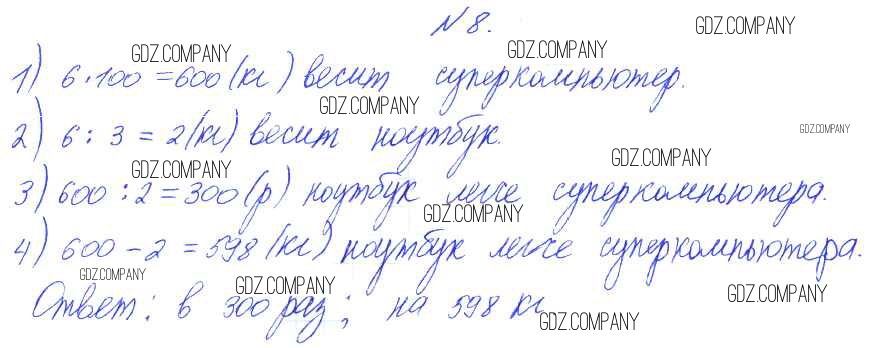 N 8.
GDZ.COMPANY
GDZ.COMPANY GDZ.COMPANY
1) 6 · 100 = 600 (кг) весит суперкомпьютер.
GDZ.COMPANY
2) 6 : 3 = 2 (кг) весит ноутбук.
GDZ.COMPANY
GDZ.COMPANY GDZ.COMPANY
3) 600 : 2 = 300 (р) ноутбук легче суперкомпьютера.
GDZ.COMPANY
4) 600 - 2 = 598 (кг) ноутбук легче суперкомпьютера.
GDZ.COMPANY GDZ.COMPANY GDZ.COMPANY
Ответ: в 300 раз; на 598 кг
GDZ.COMPANY